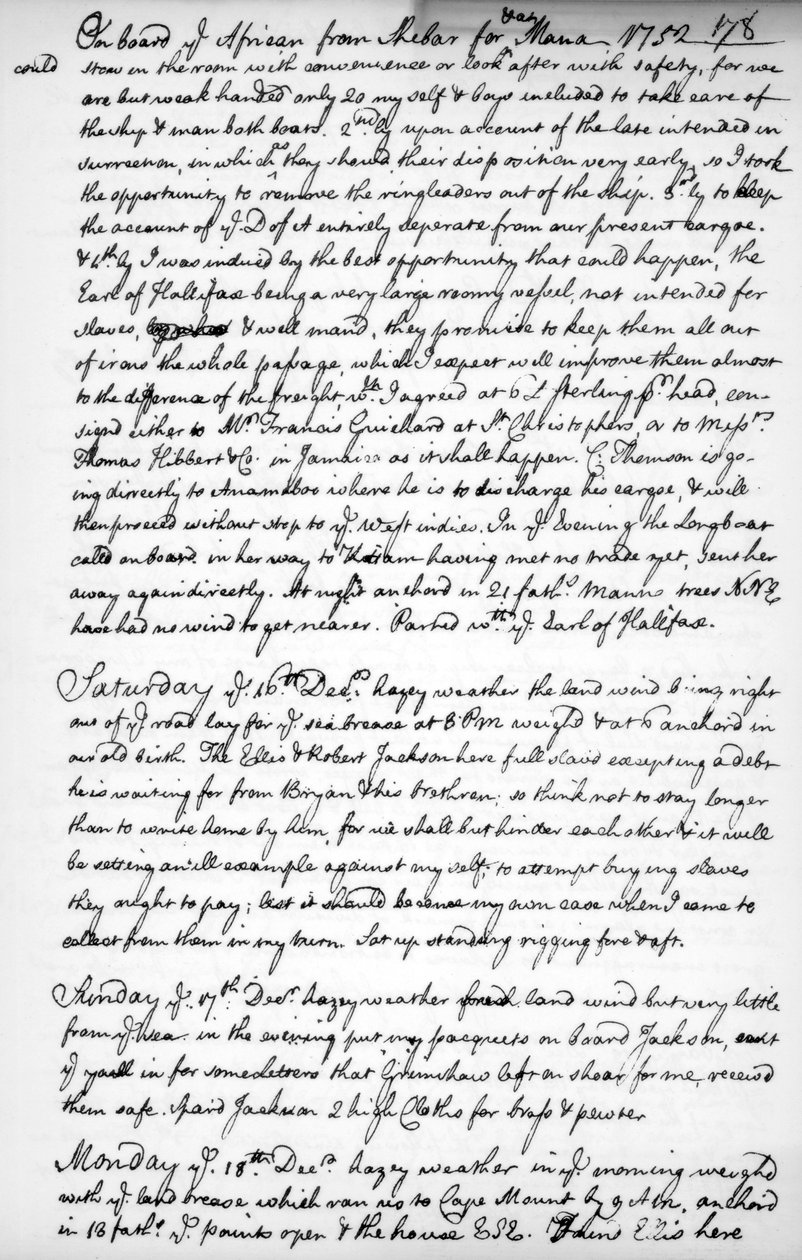 On board yᵉ African from Shebar for & at Mana 1752 178
could stow in the room with convenience or look after with safety, for we
are but weak handed only 20 my self & boys included to take care of
the ship & man both boats. 2ndly upon account of the late intended in
surrection, in which they should their disposition very early, so I took
the opportunity to remove the ringleaders out of the ship. 3rdly to keep
the account of yᵉ D of A entirely seperate from our present cargoe.
& 4thly I was induced by the best opportunity that could happen, the
Earl of Hallifax being a very large roomy vessel, not intended for
slaves, & well man'd, they promise to keep them all out
of irons the whole passage, which I expect will improve them almost
to the difference of the freight, wch. I agreed at 6 L Sterling pr head, con-
signd either to Mr Francis Guichard at St Christophers, or to Messrs.
Thomas Hibbert & Co. in Jamaica as it shall happen. C: Thomson is go-
ing directly to Anamaboo where he is to discharge his cargoe, & will
then proceed without stop to yᵉ West indies. In yᵉ Evening the Longboat
calld on board in her way to having met no trade yet, sent her
away again directly. At night anchord in 21 fathˢ Manna trees NNE
have had no wind to get nearer. Parted wth yᵉ Earl of Hallifax.
Saturday yᵉ 16th Decr. hazey weather the land wind being right
out of yᵉ road lay for yᵉ sea brease at 3 PM weighd & at 6 anchord in
our old birth. The Ellis & Robert Jackson here full slav'd excepting a debt
he is waiting for from Bryan & his brethren; so think not to stay longer
than to write home by him, for we shall but hinder each other & it will
be setting an ill example against my self, to attempt buying slaves
they ought to pay; lest it should become my own case when I come to
collect from them in my turn. Sat up standing rigging fore & aft.
Sunday yᵉ 17th Decr hazey weather fresh land wind but very little
from yᵉ sea. in the evening put my pacquets on board Jackson, sent
yᵉ yaull in for some letters that Grimshaw left on shoar for me, receivd
them safe. Spaird Jackson 2 high Cloths for brass & pewter
Monday yᵉ 18th Decr. hazey weather in yᵉ morning weighd
with yᵉ land brease which ran us to Cape Mount by 9 AM. anchord
in 13 fathˢ yᵉ points open & the house ESE. Found Ellis here